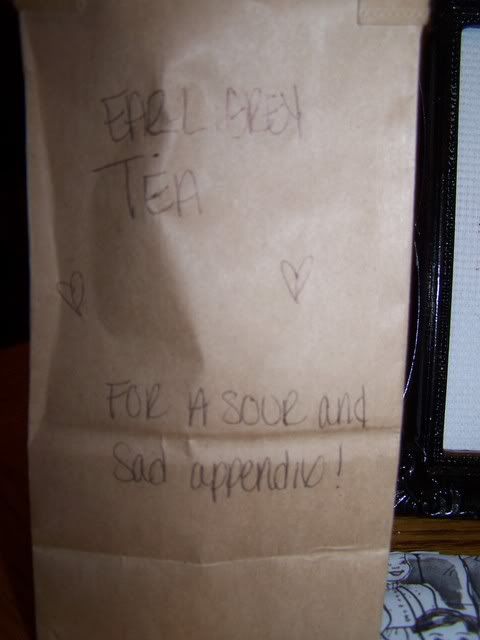 EARL GREY
TEA
FOR A SOUR and
Sad appendix!